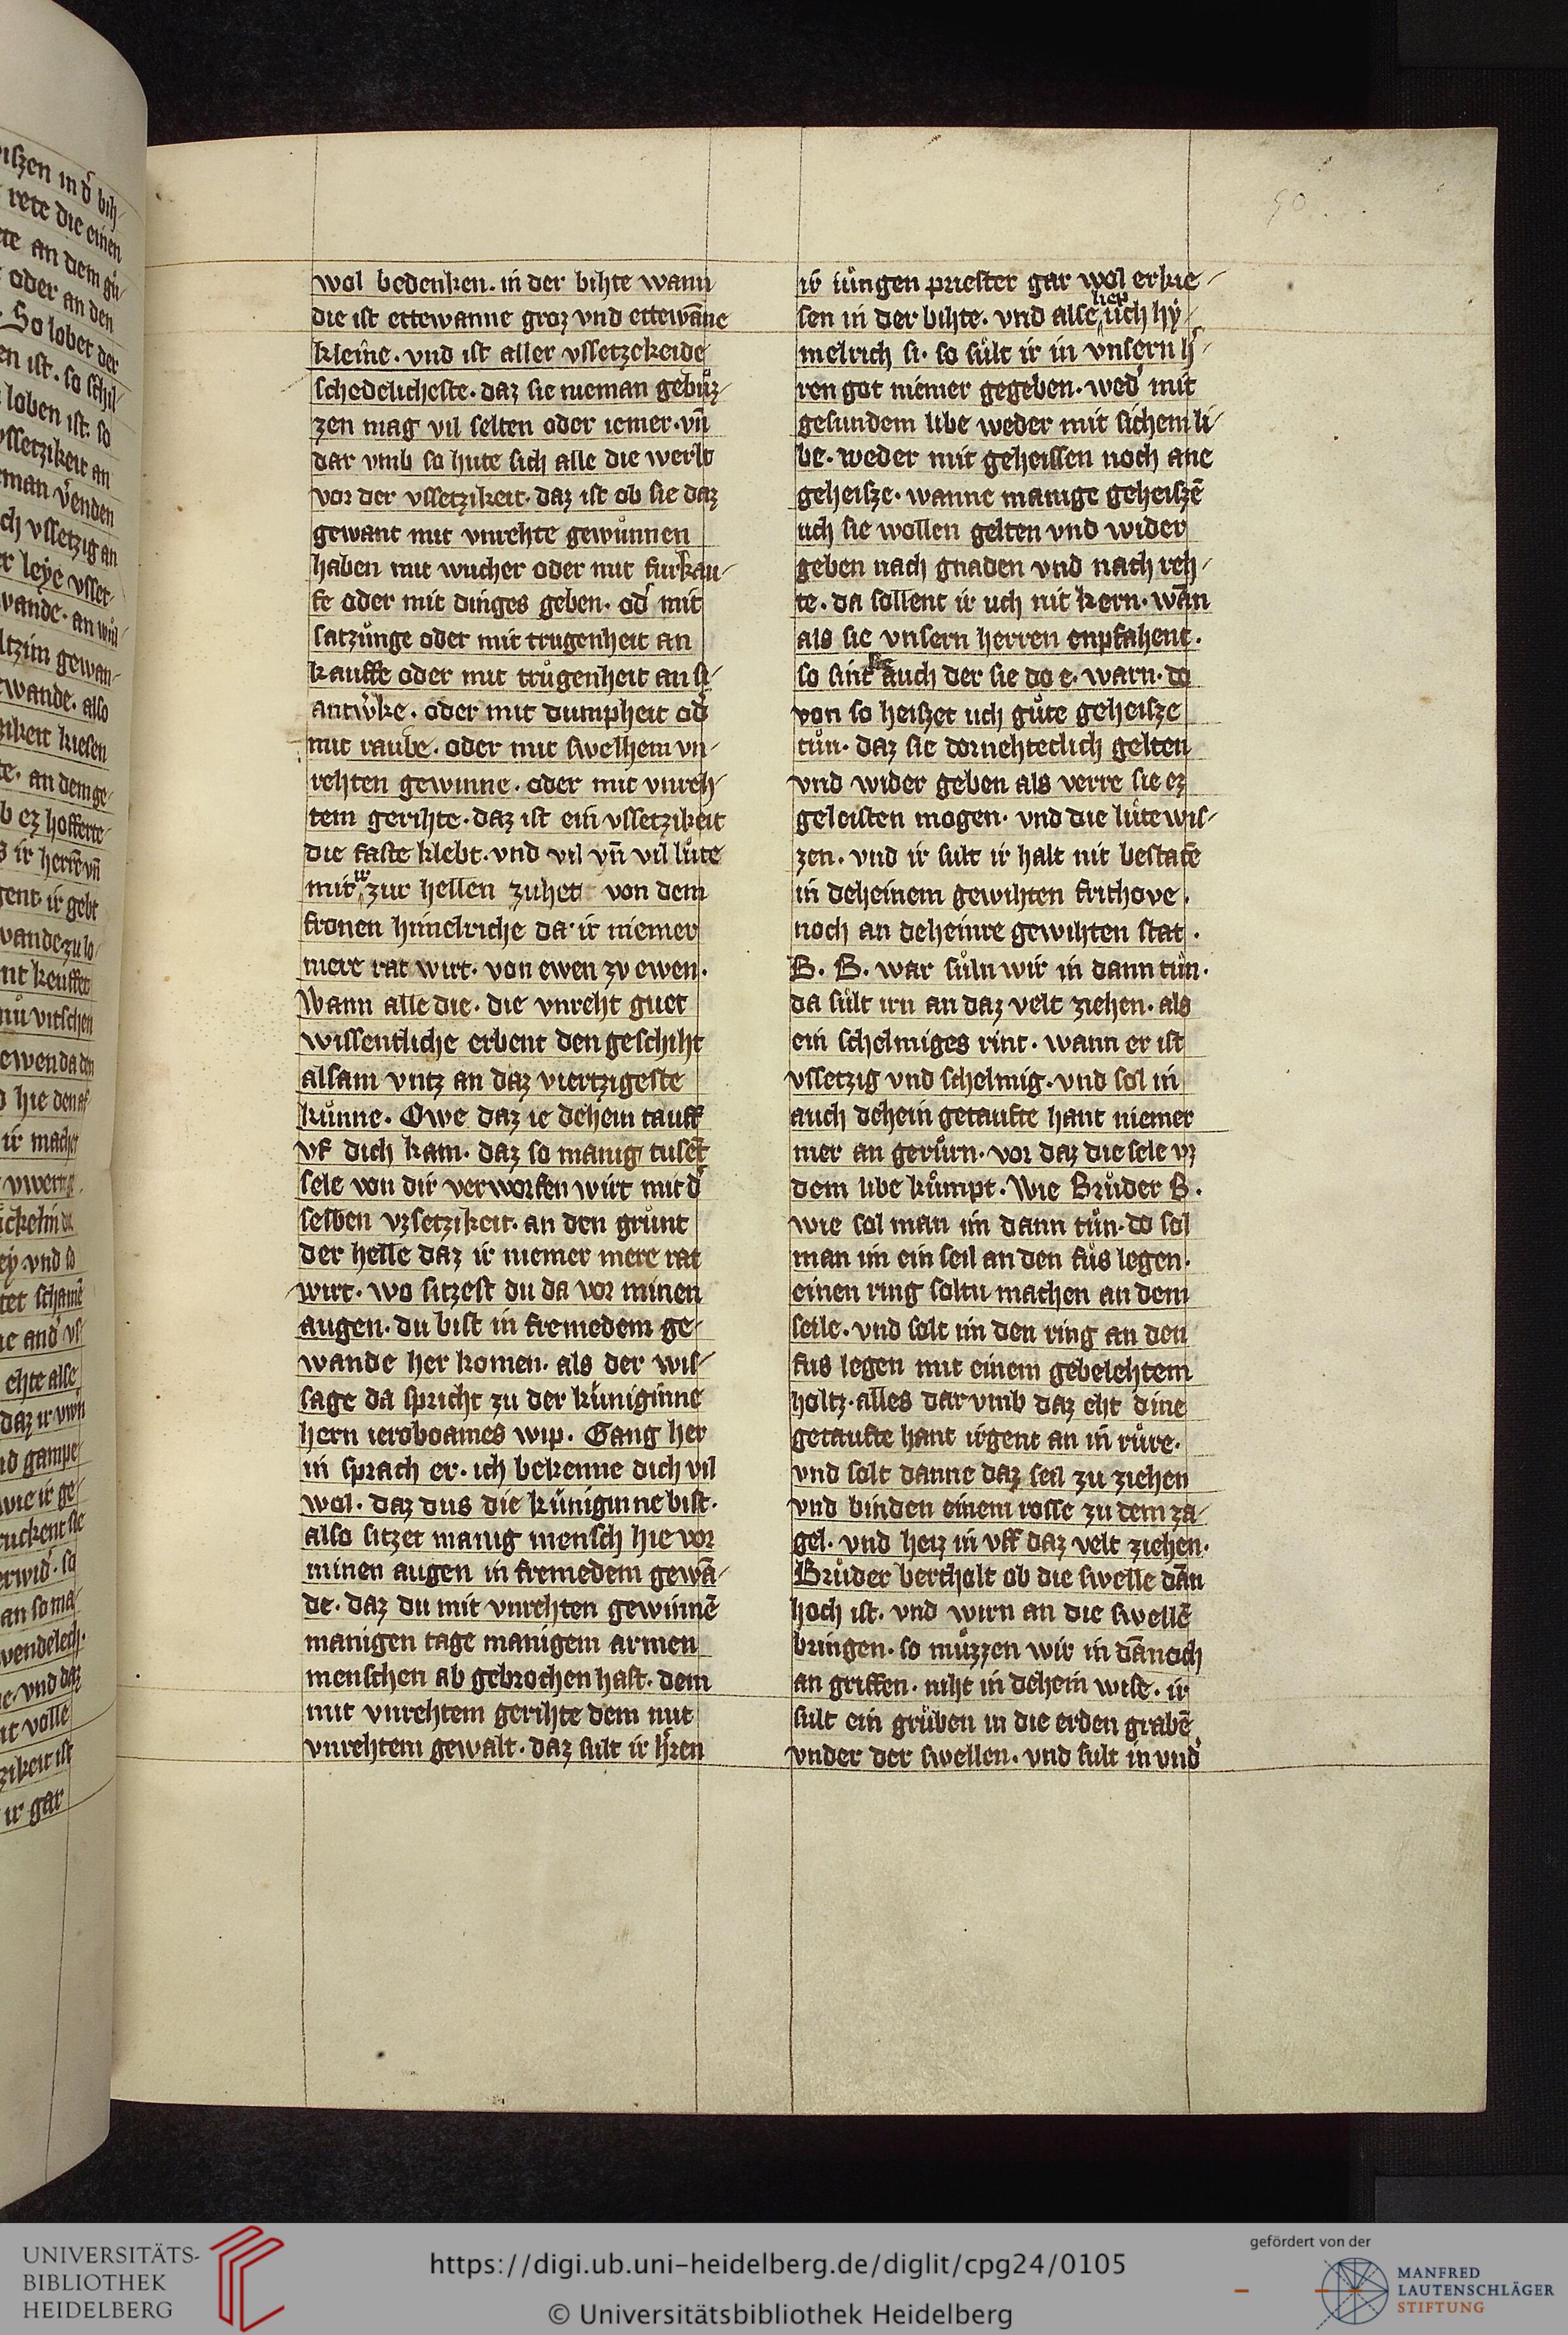 50
wol bedenken. in der bihte wann
die ist ettewanne groz vnd ettewāne
kleine. vnd ist aller vssetzekeide
schedelicheste. daz sie nieman gebůz-
zen mag vil selten oder iemer. vn̄
dar vmb so hute sich alle die werlt
vor der vssetzikeit. daz ist ob sie daz
gewant mit vnrehte gewůnnen
haben mit wucher oder mit furkau-
fe oder mit dinges geben. od' mit
satzůnge oder mit trugenheit an
kauffe oder mit trůgenheit an si-
antw'ke. oder mit dumpheit od'
mit raube. oder mit swelhem vn-
rehten gewinne. oder mit vnreh-
tem gerihte. daz ist ein vssetzikeit
die faste klebt. vnd vil vn̄ vil lůte
mit zur hellen zuhet von dem
fronen himelriche da ir niemer
mere rat wirt. von ewen zv ewen.
Wann alle die. die vnreht guet
wissentliche erbent den geschiht
alsam vntz an daz viertzigeste
kůnne. Owe daz ie dehein tauff
vf dich kam. daz so manig tusēt
sele von dir verworfen wirt mit d'
selben vzsetzikeit. an den grůnt
der helle daz ir niemer mere rat
wirt. wo sitzest du da vor minen
augen. du bist in fremedem ge-
wande her komen. als der wis-
sage da spricht zu der kůniginne
hern ieroboames wip. Gang her
in sprach er. ich bekenne dich vil
wol. daz dus die kůniginne bist.
also sitzet manig mensch hie vor
minen augen in fremedem gewā-
de. daz du mit vnrehten gewinnē
manigen tage manigem armen
menschen ab gebrochen hast. dem
mit vnrehtem gerihte dem mit
vnrehtem gewalt. daz sult ir h'ren
ir iůngen priester gar wol erkie-
sen in der bihte. vnd alse liep uch hy-
melrich si. so sůlt ir in vnsern h'-
ren got niemer gegeben. wed' mit
gesundem libe weder mit sichem li-
be. weder mit geheissen noch ane
geheisze. wanne manige geheiszē
uch sie wollen gelten vnd wider
geben nach gnaden vnd nach reh-
te. da sollent ir uch nit kern. wān
als sie vnsern herren enpfahent.
so sint sie auch der sie do e. warn. do
von so heiszet uch gůte geheisze
tůn. daz sie dornehteclich gelten
vnd wider geben als verre sie ez
geleisten mogen. vnd die lůte wis-
zen. vnd ir sult ir halt nit bestatē
in deheinem gewihten frithove.
noch an deheinre gewihten stat.
B. B. war sůln wir in dann tůn.
da sůlt irn an daz velt ziehen. als
ein schelmiges rint. wann er ist
vssetzig vnd schelmig. vnd sol in
auch dehein getaufte hant niemer
mer an gerůrn. vor daz die sele vz
dem libe kůmpt. Wie Brůder B.
wie sol man im dann tůn. do sol
man im ein seil an den fůs legen.
einen ring soltu machen an dem
seile. vnd solt im den ring an den
fus legen mit einem gebelehtem
holtz. alles dar vmb daz eht dine
getaufte hant irgent an in růre.
vnd solt danne daz seil zu ziehen
vnd binden einem rosse zu dem za-
gel. vnd heiz in vff daz velt ziehen.
Brůder bertholt ob die swelle dān
hoch ist. vnd wirn an die swellē
bringen. so můzzen wir in dānoch
an griffen. niht in dehein wise. ir
sult ein grůben in die erden grabē
vnder der swellen. vnd sult in vnd'
UNIVERSITÄTS-
BIBLIOTHEK
HEIDELBERG
https://digi.ub.uni-heidelberg.de/diglit/cpg24/0105
© Universitätsbibliothek Heidelberg
gefördert von der
MANFRED
LAUTENSCHLÄGER
STIFTUNG